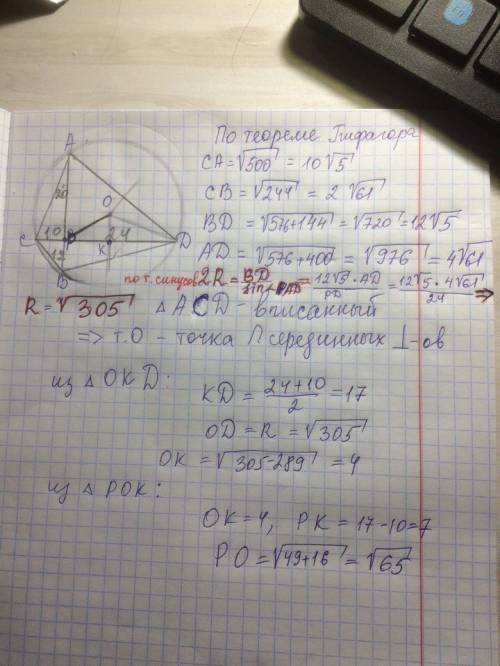 По теореме Пифагора
CA = √500 = 10√5
CB = √244 = 2√61
BD = √576+144 = √720 = 12√5
AD = √576+400 = √976 = 4√61
A
20
O
C
10
P
K
24
D
12
B
по т. синусов 2R = BD/sin∠BAD = 12√5 · AD/PD = 12√5 · 4√61/24 ⇒
R = √305 △ACD - вписанный
⇒ т.О - точка ∩ серединных ⊥-ов
из △OKD:
KD = 24+10/2 = 17
OD = R = √305
OK = √305-289 = 4
из △POK:
OK = 4, PK = 17-10 = 7
PO = √49+16 = √65